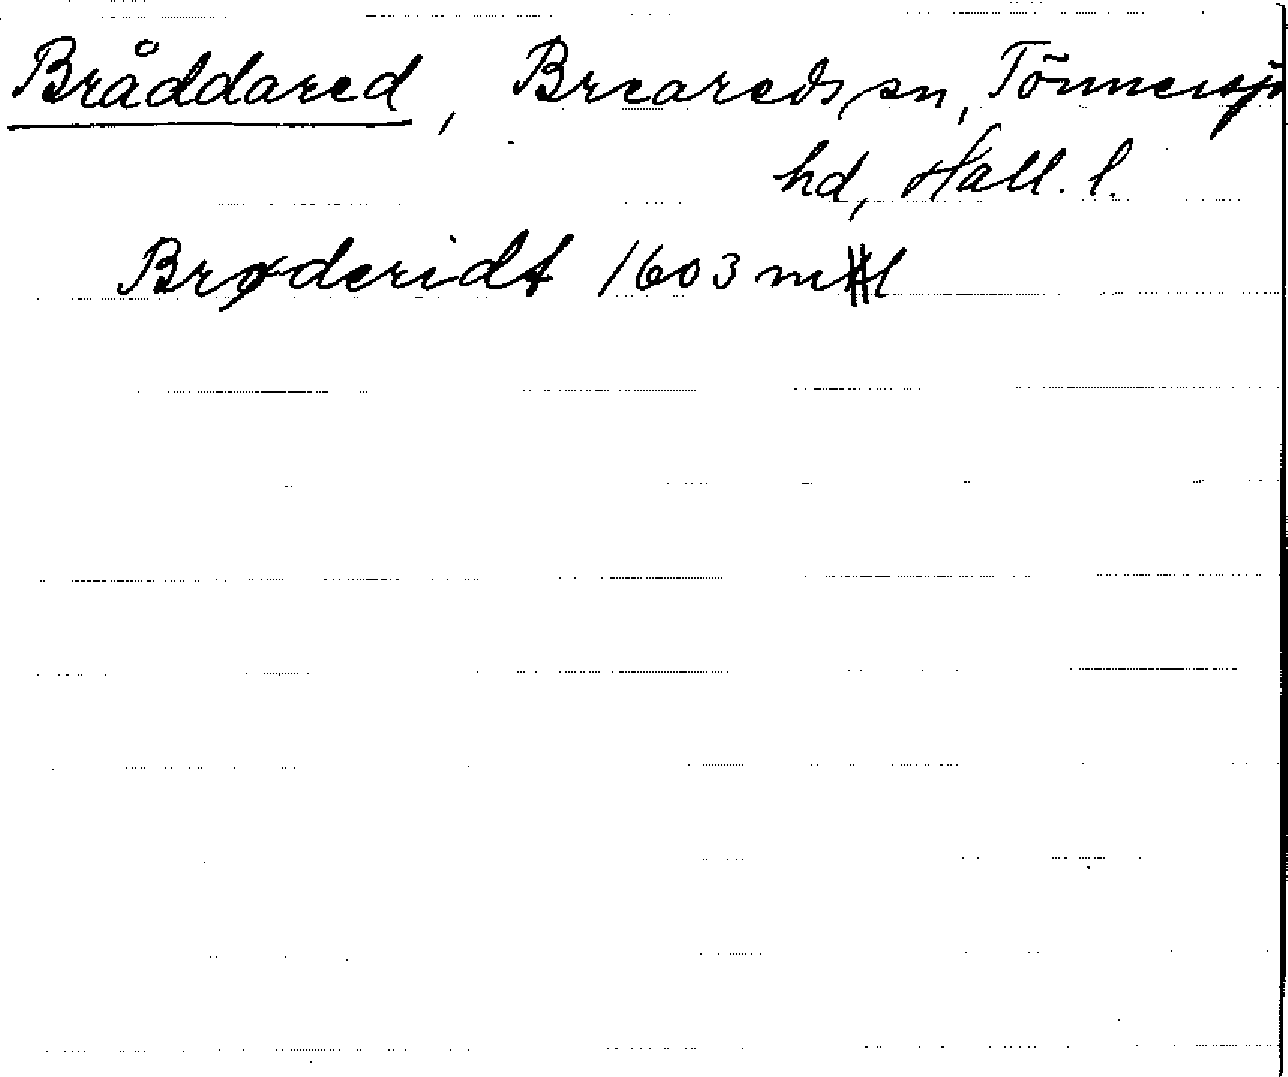 Bråddared, Breareds sn, Tönnersjö
hd, Hall. l.
Brøderidt 1603